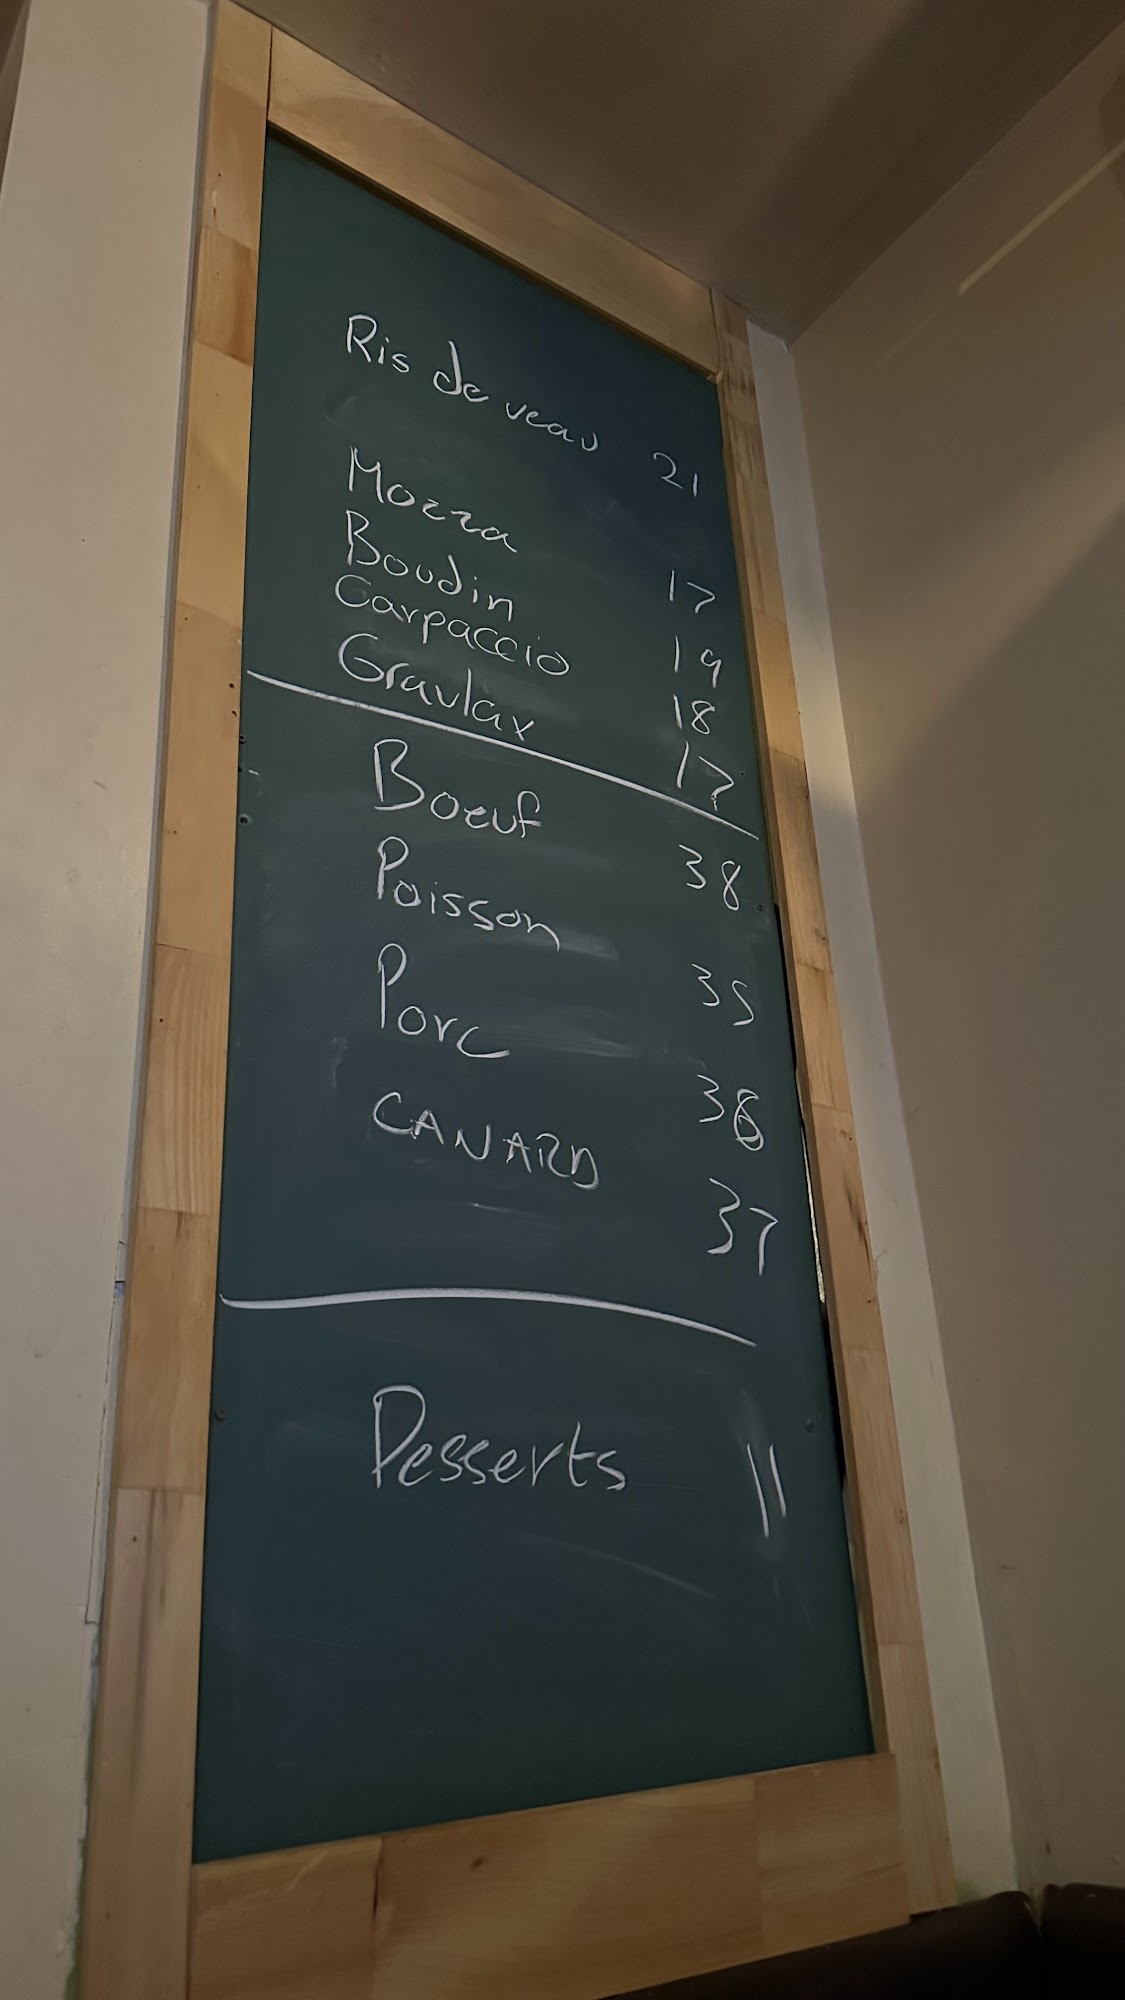 Ris de veau 21
Mozza 17
Boudin 19
Carpaccio 18
Gravlax 17
Boeuf 38
Poisson 35
Porc 38
CANARD 37
Desserts 11